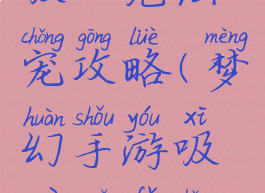 chǒng gōng lüè mèng
宠攻略(梦
huàn shǒu yóu xī
幻手游吸